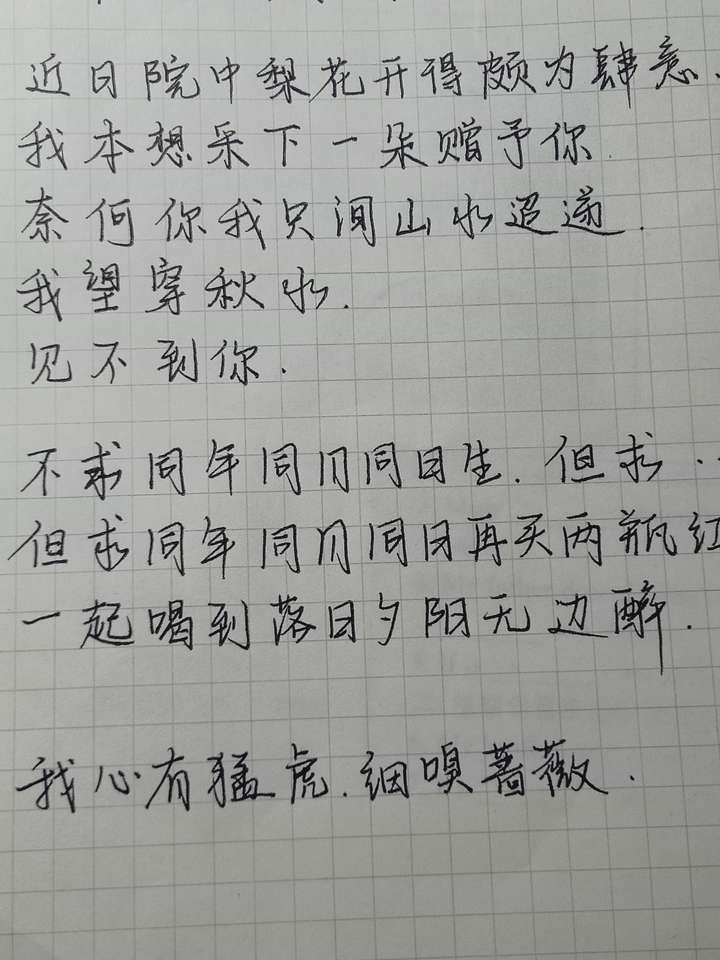 近日院中梨花开得颇为肆意、
我本想采下一朵赠予你.
奈何你我只间山水迢递.
我望穿秋水.
见不到你.
不求同年同月同日生. 但求..
但求同年同月同日再买两瓶红
一起喝到落日夕阳无边醉.
我心有猛虎.细嗅蔷薇.